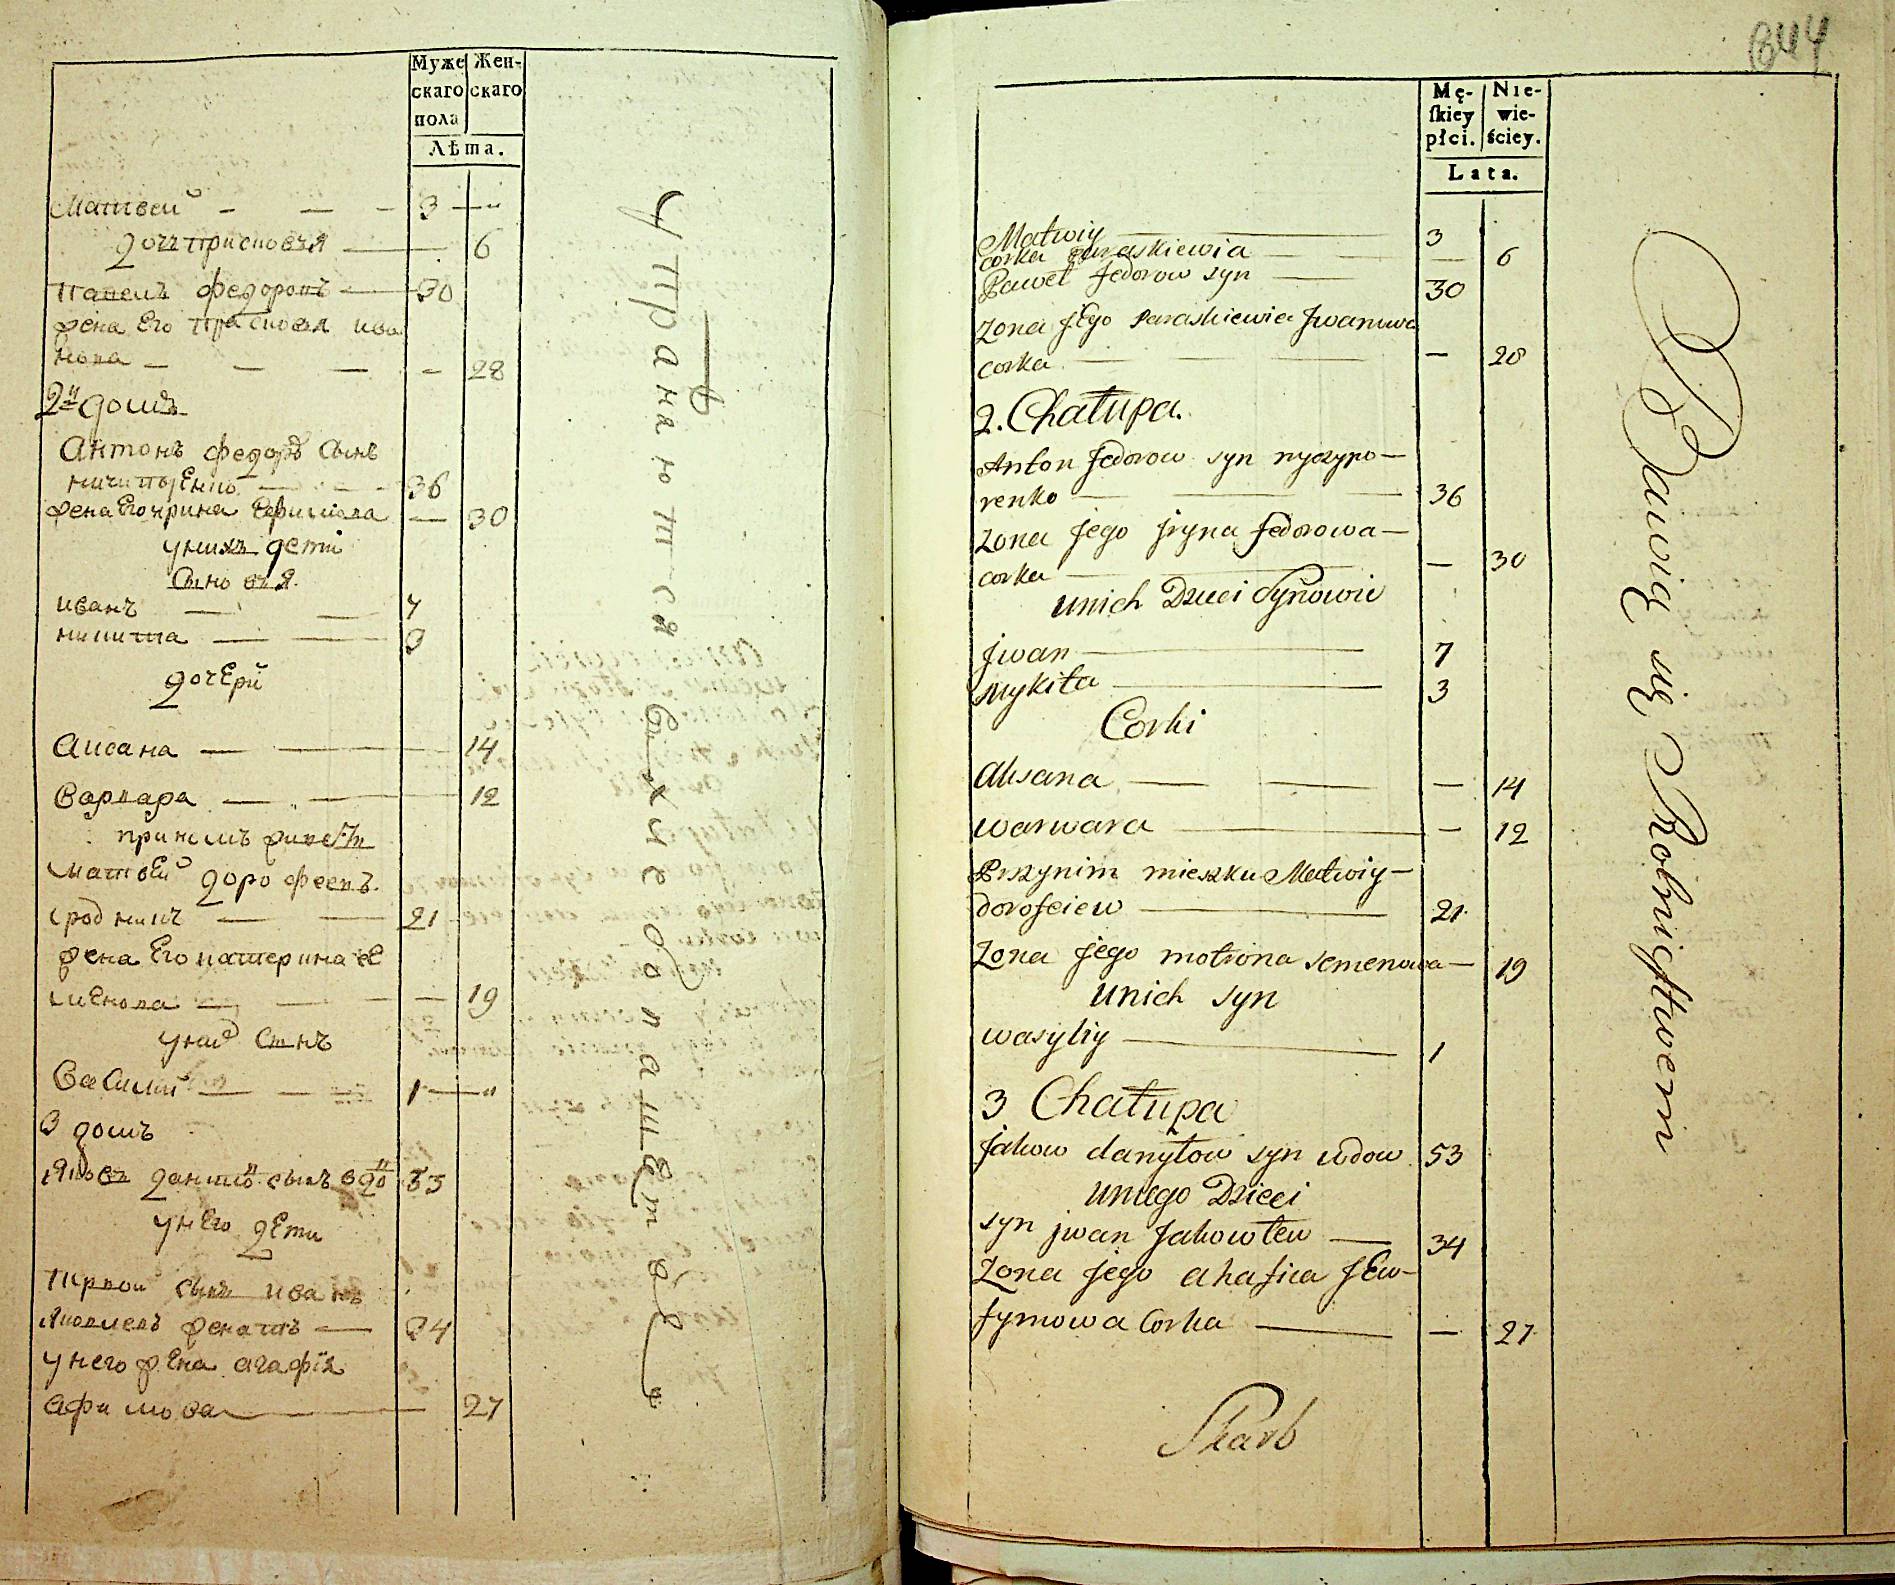 Муже
скаго
пола
Жен-
скаго
Лѣта.
Матвей — — — 3 — "
дочь присповья — 6
павелъ федоровъ — 30
жена Его присповья ива
нова — — — — 28
2й домъ
Антонъ федоръ Сынъ
ничипоренко — — 36
жена Его ирина Ефимова — 30
у нихъ дети
Сыновья
иванъ — — 7
никита — — 3
дочери
аксана — — 14
варвара — — 12
при немъ живетъ
матвей дорофеевъ
сродникъ — — 21
жена Его катерина се
менова — — — 19
у них Сынъ
Василий — — 1 — "
3 домъ
Яковъ сынъ вдо 53
у него дети
первой сынъ иванъ
Яковлевъ женатъ — 34
у него жена агафїя
афимова — 27
Упражняются в хлебопашестве
844
Mę-
ſkiey
płci.
Nie-
wie-
ściey.
Lata.
Matwiy — 3
corka paraskiewia — — — 6
Paweł fedorow syn — 30
Zona jEgo Paraskiewia Jwanowa
corka — — — — 28
2. Chałupa.
Anton fedorow syn nyczypo—
renko — — — 36
Zona jego jryna fedorowa—
corka — — — 30
unich Dzieci Synowie
jwan — 7
Mykita — 3
Corki
aksana — — — — 14
warwara — — 12
Przynim mieszku Matwiy—
dorofeiew — 21
Zona jego motrona semenowa — 19
Unich syn
wasyliy — 1
3 Chałupa
jakow danyłow syn wdow 53
uniego Dzieci
syn jwan Jakowlew — 34
Zona jego ahafia jEw—
fymowa Corka — — 27
Skarb
Bawią się Robnictwem